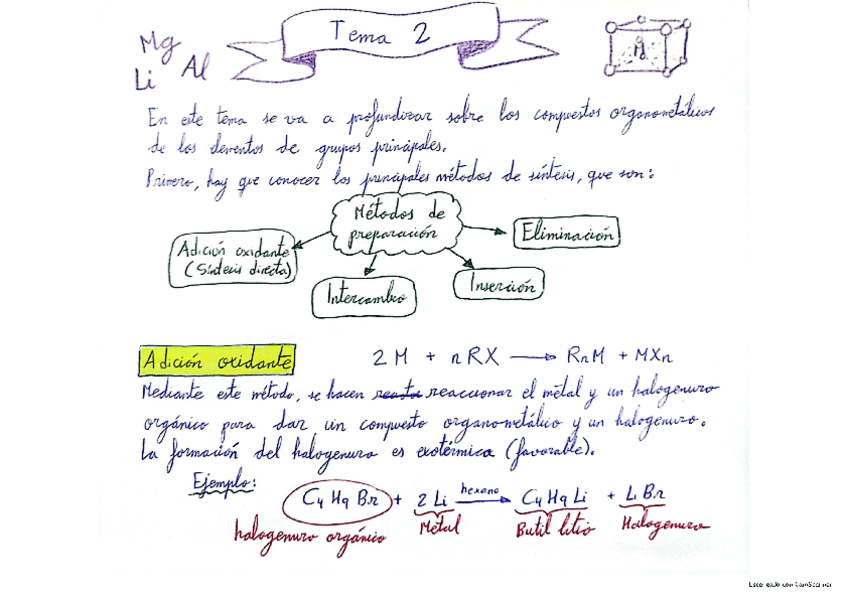 Tema 2
Mg
Li Al
M
En este tema se va a profundizar sobre los compuestos organometálicos
de los elementos de grupos principales.
Primero, hay que conocer los principales métodos de síntesis, que son:
Métodos de
preparación
Adición oxidante
(Síntesis directa)
Intercambio
Inserción
Eliminación
Adición oxidante
2 M + n RX → RnM + MXn
Mediante este método, se hacen reaccionar el metal y un halogenuro
orgánico para dar un compuesto organometálico y un halogenuro.
La formación del halogenuro es exotérmica (favorable).
Ejemplo:
C4 H9 Br + 2 Li hexano → C4 H9 Li + Li Br
halogenuro orgánico Metal Butil litio Halogenuro
Escaneado con CamScanner